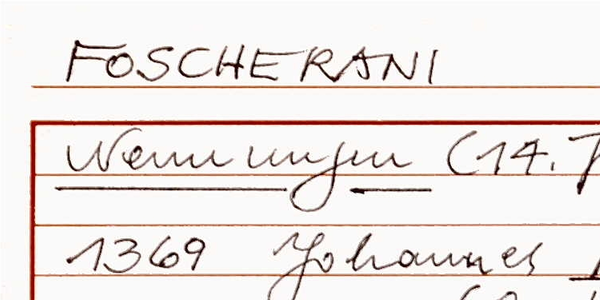 FOSCHERANI
Nennungen (14. J
1369 Johannes